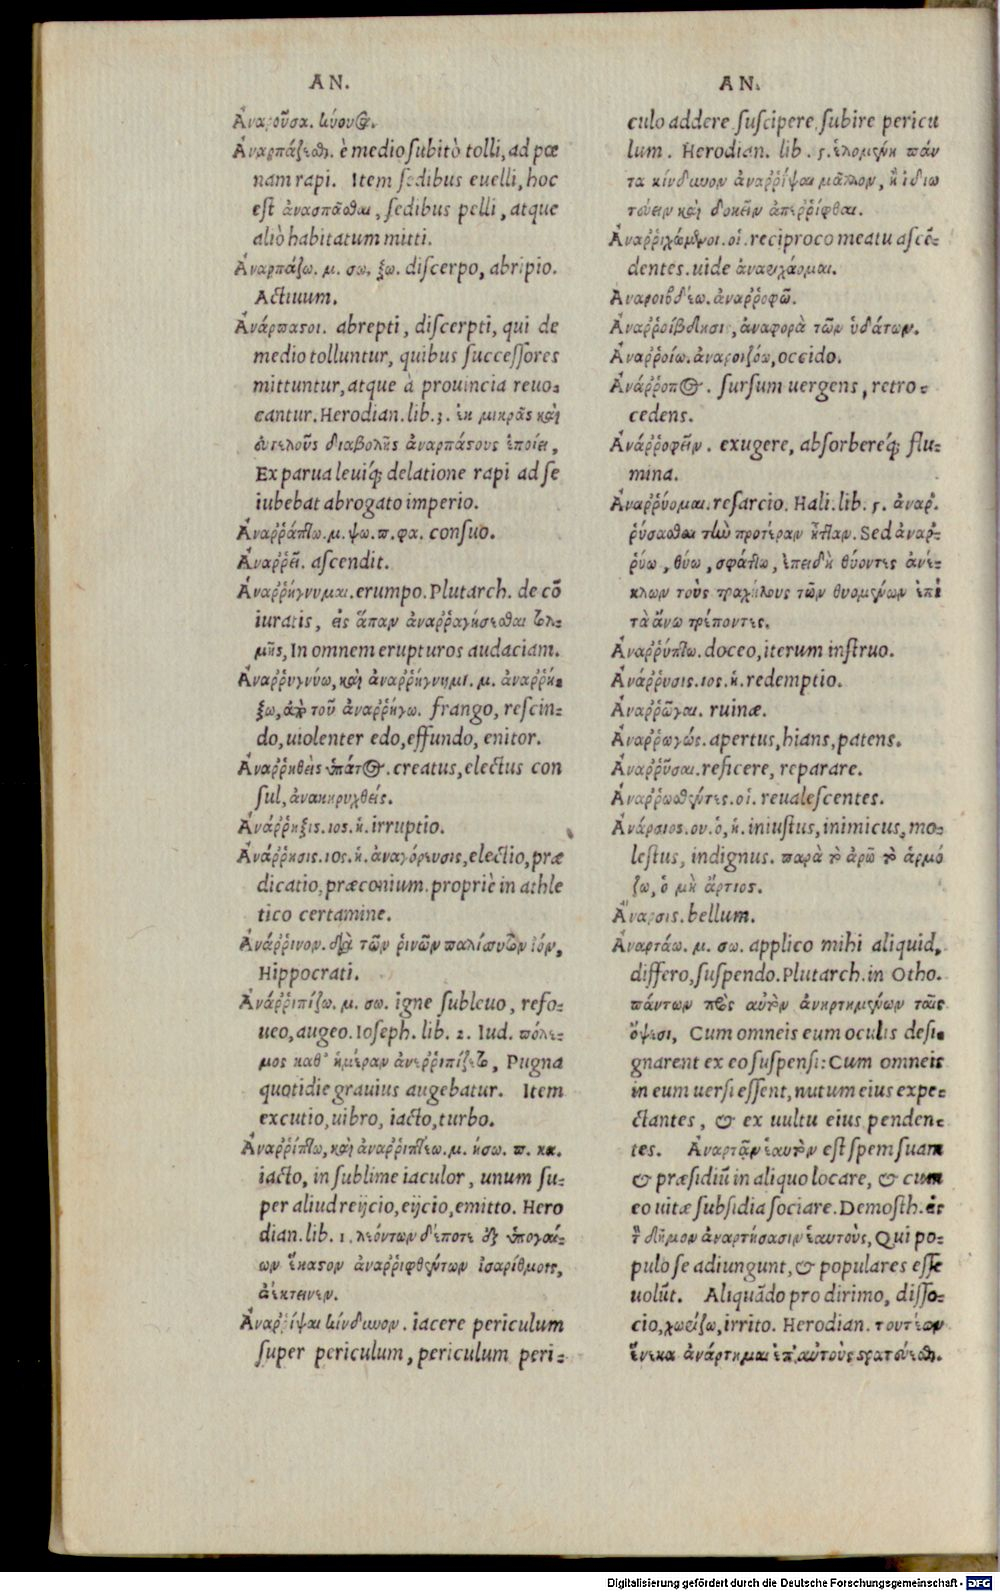 AN.
Ἀναροῦσα. κύουσα.
Ἀναρπάζεσθαι. è medio subitò tolli, ad pœ
nam rapi. Item sedibus euelli, hoc
est ἀνασπᾶσθαι, sedibus pelli, atque
aliò habitatum mitti.
Ἀναρπάζω. μ. σω. ξω. discerpo, abripio.
Actiuum.
Ἀνάρπαστοι. abrepti, discerpti, qui de
medio tolluntur, quibus successores
mittuntur, atque à prouincia reuo-
cantur. Herodian. lib. 3. ἐκ μικρᾶς καὶ
εὐτελοῦς διαβολῆς ἀναρπάστους ἐποίει,
Ex parua leuiq́; delatione rapi ad se
iubebat abrogato imperio.
Ἀναῤῥάπτω. μ. ψω. π. φα. consuo.
Ἀναῤῥεῖ. ascendit.
Ἀναῤῥήγνυμαι. erumpo. Plutarch. de cõ
iuratis, εἰς ἅπαν ἀναῤῥαγήσεσθαι τόλ-
μης, In omnem erupturos audaciam.
Ἀναῤῥυγνύω, καὶ ἀναῤῥήγνημι. μ. ἀναῤῥή-
ξω, ἀπὸ τοῦ ἀναῤῥήγω. frango, rescin-
do, uiolenter edo, effundo, enitor.
Ἀναῤῥηθεὶς ὕπατος. creatus, electus con
sul, ἀνακηρυχθείς.
Ἀνάῤῥηξις. ιος. ἡ. irruptio.
Ἀνάῤῥησις. ιος. ἡ. ἀναγόρευσις, electio, præ
dicatio, præconium. propriè in athle
tico certamine.
Ἀνάῤῥινον. διὰ τῶν ῥινῶν παλίσυτον ἰόν,
Hippocrati.
Ἀνάῤῥιπίζω. μ. σω. igne subleuo, refo-
ueo, augeo. Ioseph. lib. 2. Iud. πόλε-
μος καθ' ἡμέραν ἀνεῤῥιπίζετο, Pugna
quotidie grauius augebatur. Item
excutio, uibro, iacto, turbo.
Ἀναῤῥίπτω, καὶ ἀναῤῥιπτέω. μ. ήσω. π. κα.
iacto, in sublime iaculor, unum su-
per aliud reijcio, eijcio, emitto. Hero
dian. lib. 1. λεόντων δέ ποτε ἐξ ὑπογαί-
ων ἕκατον ἀναῤῥιφθέντων ἰσαρίθμοις,
ἀέκτεινεν.
Ἀναῤῥίψαι κίνδυνον. iacere periculum
super periculum, periculum peri-
AN.
culo addere suscipere, subire pericu
lum. Herodian. lib. 5. ἑλομένη πάν
τα κίνδυνον ἀναῤῥίψαι μᾶλλον, ἢ ἰδιω
τεύειν καὶ δοκεῖν ἀπεῤῥίφθαι.
Ἀναῤῥιχώμενοι. οἱ. reciproco meatu ascẽ-
dentes. uide ἀναρχάομαι.
Ἀναροιβδέω. ἀναῤῥοφῶ.
Ἀναῤῥοίβδησι, ἀναφορὰ τῶν ὑδάτων.
Ἀναῤῥοίω. ἀναροιζόω, occido.
Ἀνάῤῥοπος. sursum uergens, retro-
cedens.
Ἀνάῤῥοφεῖν. exugere, absorbereq́; flu-
mina.
Ἀναῤῥύομαι. resarcio. Hali. lib. 5. ἀναῤ-
ῥύσασθαι τὴν προτέραν ἧτταν. Sed ἀναῤ-
ῥύω, θύω, σφάττω, ἐπειδὴ θύοντες ἀνέ-
κλων τοὺς τραχήλους τῶν θυομένων ἐπὶ
τὰ ἄνω τρέποντες.
Ἀναῤῥύπτω. doceo, iterum instruo.
Ἀνάῤῥυσις. ιος. ἡ. redemptio.
Ἀναῤῥῶγαι. ruinæ.
Ἀναῤῥωγώς. apertus, hians, patens.
Ἀναῤῥῦσαι. reficere, reparare.
Ἀναῤῥωσθέντες. οἱ. reualescentes.
Ἀνάρσιος. ου. ὁ, ἡ. iniustus, inimicus, mo-
lestus, indignus. παρὰ τὸ ἀρῶ τὸ ἁρμό
ζω, ὁ μὴ ἄρτιος.
Ἄναρσις. bellum.
Ἀναρτάω. μ. σω. applico mihi aliquid,
differo, suspendo. Plutarch. in Otho.
πάντων πρὸς αὐτὸν ἀνηρτημένων ταῖς
ὄψεσι, Cum omneis eum oculis desi-
gnarent ex eo suspensi: Cum omneis
in eum uersi essent, nutum eius expe-
ctantes, & ex uultu eius penden-
tes. Ἀναρτᾶν ἑαυτὸν est spem suam
& præsidiũ in aliquo locare, & cum
eo uitæ subsidia sociare. Demosth. εἰς
τὸν δῆμον ἀναρτήσασιν ἑαυτοὺς, Qui po-
pulo se adiungunt, & populares esse
uolũt. Aliquãdo pro dirimo, disso-
cio, χωρίζω, irrito. Herodian. τουτέων
ἕνεκα ἀνάρτημαι ἐπ' αὐτοὺς στρατεύεσθαι.
Digitalisierung gefördert durch die Deutsche Forschungsgemeinschaft - DFG